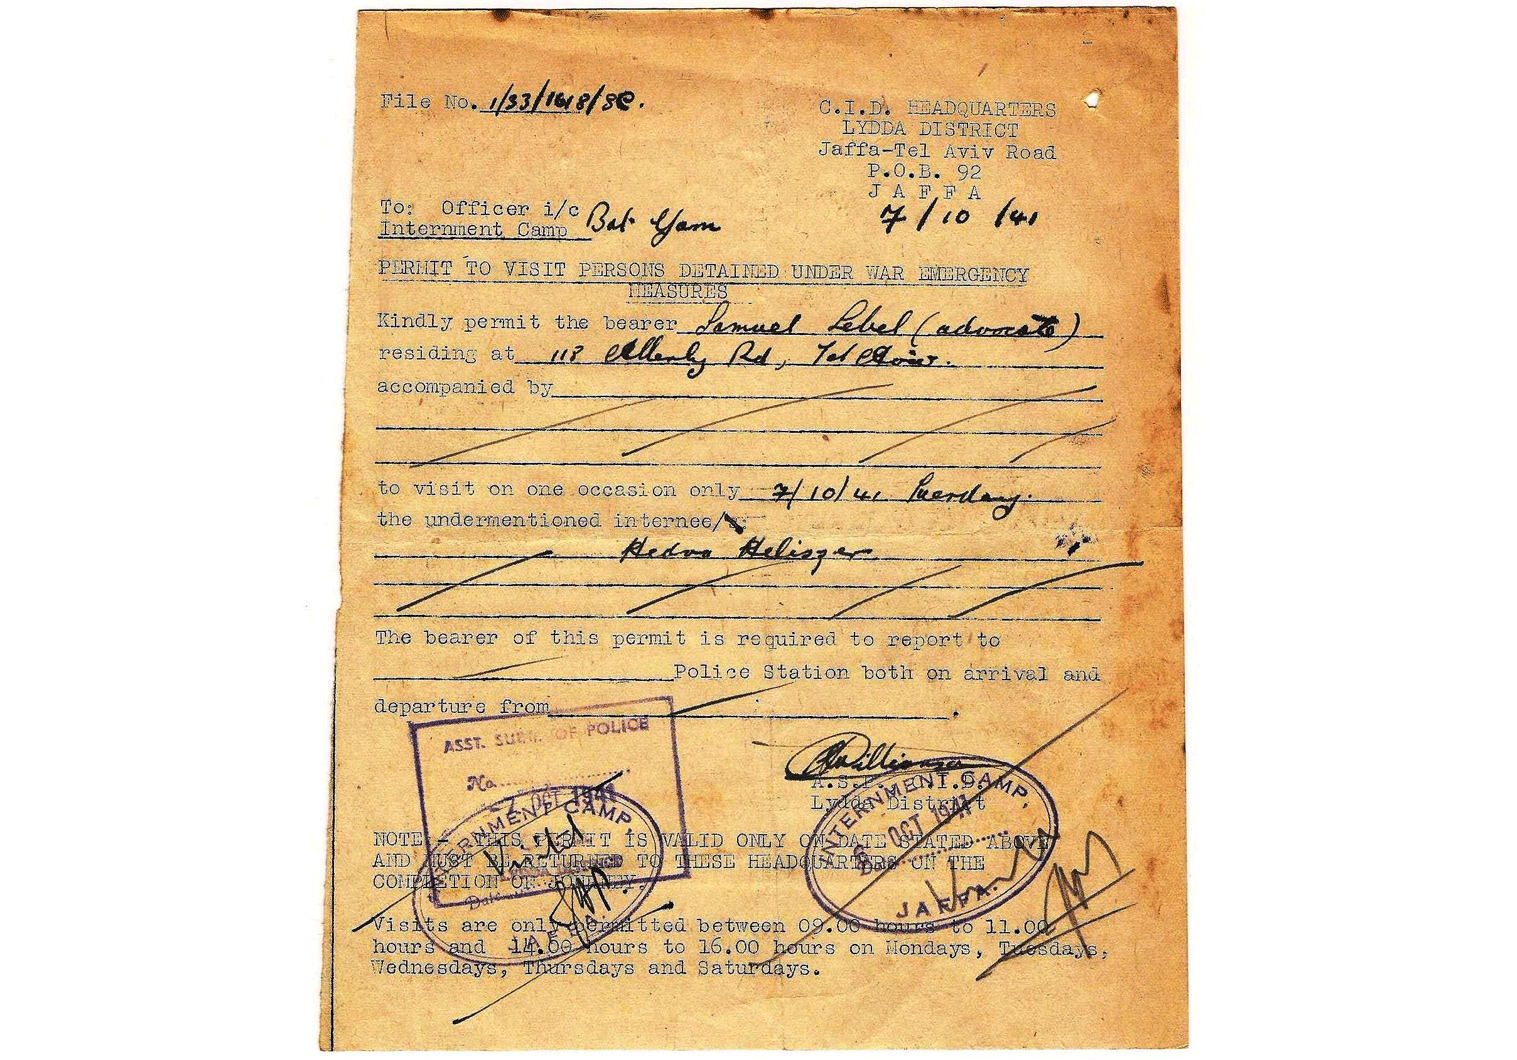 File No. 1/33/1618/SC.
C.I.D. HEADQUARTERS
LYDDA DISTRICT
Jaffa-Tel Aviv Road
P.O.B. 92
J A F F A
7/10/41
To: Officer i/c
Internment Camp Bat Yam
PERMIT TO VISIT PERSONS DETAINED UNDER WAR EMERGENCY
MEASURES
Kindly permit the bearer Samuel Lebel (advocate)
residing at 113 Allenby Rd, Tel Aviv.
accompanied by
to visit on one occasion only 7/10/41 Tuesday.
the undermentioned internee/
Hedva Heliszer
The bearer of this permit is required to report to
Police Station both on arrival and
departure from .
ASST. SUPT. OF POLICE
No.
7 OCT 1941
A.S.P. C.I.D.
Lydda District
INTERNMENT CAMP,
OCT 1941
Date
JAFFA.
INTERNMENT CAMP
Date
JAFFA.
NOTE:- THIS PERMIT IS VALID ONLY ON DATE STATED ABOVE
AND MUST BE RETURNED TO THESE HEADQUARTERS ON THE
COMPLETION OF JOURNEY.
Visits are only permitted between 09.00 hours to 11.00
hours and 14.00 hours to 16.00 hours on Mondays, Tuesdays,
Wednesdays, Thursdays and Saturdays.